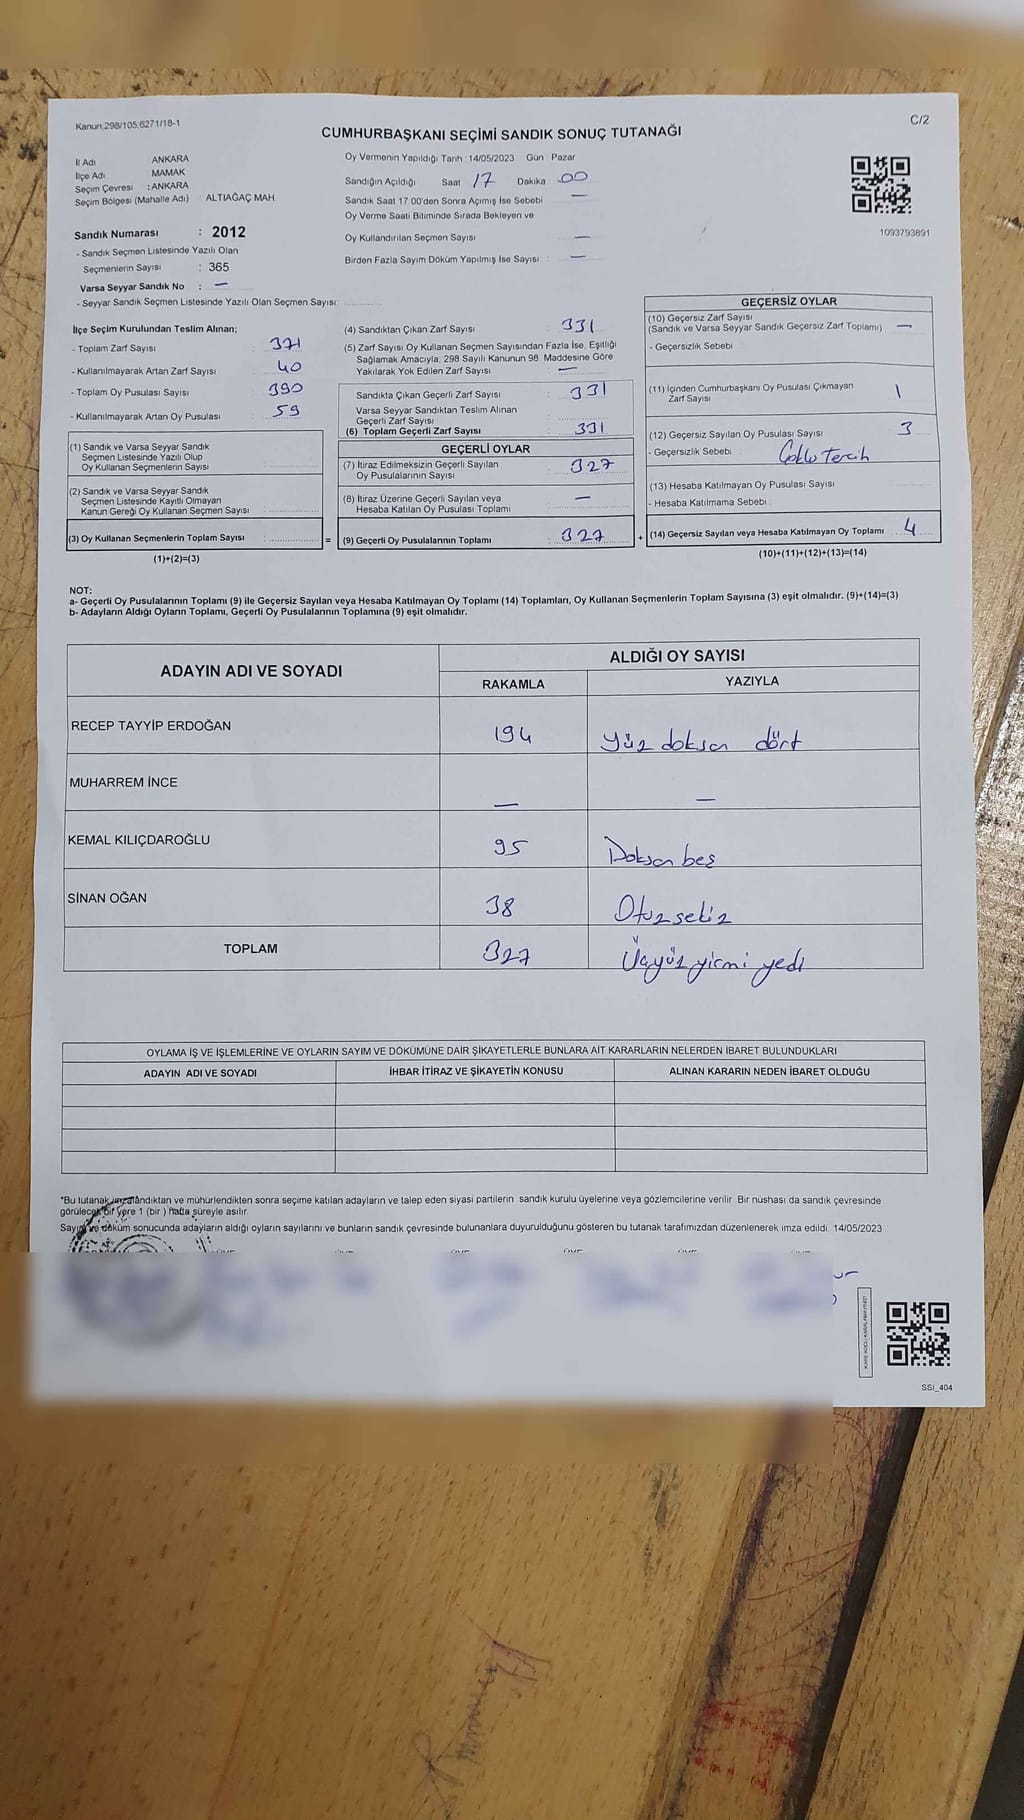 Kanun:298/105;6271/18-1
C/2
CUMHURBAŞKANI SEÇİMİ SANDIK SONUÇ TUTANAĞI
İl Adı ANKARA
İlçe Adı MAMAK
Seçim Çevresi : ANKARA
Seçim Bölgesi (Mahalle Adı) : ALTIAĞAÇ MAH.
Sandık Numarası : 2012
- Sandık Seçmen Listesinde Yazılı Olan
Seçmenlerin Sayısı : 365
Varsa Seyyar Sandık No : —
- Seyyar Sandık Seçmen Listesinde Yazılı Olan Seçmen Sayısı:
Oy Vermenin Yapıldığı Tarih : 14/05/2023 Gün Pazar
Sandığın Açıldığı Saat 17 Dakika 00
Sandık Saat 17:00'den Sonra Açımış İse Sebebi —
Oy Verme Saati Bitiminde Sırada Bekleyen ve
Oy Kullandırılan Seçmen Sayısı : —
Birden Fazla Sayım Döküm Yapılmış İse Sayısı : —
1093793891
İlçe Seçim Kurulundan Teslim Alınan;
- Toplam Zarf Sayısı : 371
- Kullanılmayarak Artan Zarf Sayısı : 40
- Toplam Oy Pusulası Sayısı : 390
- Kullanılmayarak Artan Oy Pusulası : 59
(1) Sandık ve Varsa Seyyar Sandık
Seçmen Listesinde Yazılı Olup
Oy Kullanan Seçmenlerin Sayısı :
(2) Sandık ve Varsa Seyyar Sandık
Seçmen Listesinde Kayıtlı Olmayan
Kanun Gereği Oy Kullanan Seçmen Sayısı :
(3) Oy Kullanan Seçmenlerin Toplam Sayısı :
(1)+(2)=(3)
(4) Sandıktan Çıkan Zarf Sayısı : 331
(5) Zarf Sayısı Oy Kullanan Seçmen Sayısından Fazla İse, Eşitliği
Sağlamak Amacıyla, 298 Sayılı Kanunun 98. Maddesine Göre
Yakılarak Yok Edilen Zarf Sayısı : —
Sandıkta Çıkan Geçerli Zarf Sayısı : 331
Varsa Seyyar Sandıktan Teslim Alınan
Geçerli Zarf Sayısı :
(6) Toplam Geçerli Zarf Sayısı : 331
GEÇERLİ OYLAR
(7) İtiraz Edilmeksizin Geçerli Sayılan
Oy Pusulalarının Sayısı : 327
(8) İtiraz Üzerine Geçerli Sayılan veya
Hesaba Katılan Oy Pusulası Toplamı : —
= (9) Geçerli Oy Pusulalarının Toplamı : 327
GEÇERSİZ OYLAR
(10) Geçersiz Zarf Sayısı
(Sandık ve Varsa Seyyar Sandık Geçersiz Zarf Toplamı) : —
- Geçersizlik Sebebi :
(11) İçinden Cumhurbaşkanı Oy Pusulası Çıkmayan
Zarf Sayısı : 1
(12) Geçersiz Sayılan Oy Pusulası Sayısı : 3
- Geçersizlik Sebebi : Çoklu Tercih
(13) Hesaba Katılmayan Oy Pusulası Sayısı :
- Hesaba Katılmama Sebebi :
+ (14) Geçersiz Sayılan veya Hesaba Katılmayan Oy Toplamı : 4
(10)+(11)+(12)+(13)=(14)
NOT:
a- Geçerli Oy Pusulalarının Toplamı (9) ile Geçersiz Sayılan veya Hesaba Katılmayan Oy Toplamı (14) Toplamları, Oy Kullanan Seçmenlerin Toplam Sayısına (3) eşit olmalıdır. (9)+(14)=(3)
b- Adayların Aldığı Oyların Toplamı, Geçerli Oy Pusulalarının Toplamına (9) eşit olmalıdır.
ADAYIN ADI VE SOYADI ALDIĞI OY SAYISI
RAKAMLA YAZIYLA
RECEP TAYYİP ERDOĞAN 194 Yüz doksan dört
MUHARREM İNCE — —
KEMAL KILIÇDAROĞLU 95 Doksan beş
SİNAN OĞAN 38 Otuz sekiz
TOPLAM 327 Üçyüz yirmi yedi
OYLAMA İŞ VE İŞLEMLERİNE VE OYLARIN SAYIM VE DÖKÜMÜNE DAİR ŞİKAYETLERLE BUNLARA AİT KARARLARIN NELERDEN İBARET BULUNDUKLARI
ADAYIN ADI VE SOYADI İHBAR İTİRAZ VE ŞİKAYETİN KONUSU ALINAN KARARIN NEDEN İBARET OLDUĞU
*Bu tutanak imzalandıktan ve mühürlendikten sonra seçime katılan adayların ve talep eden siyasi partilerin sandık kurulu üyelerine veya gözlemcilerine verilir. Bir nüshası da sandık çevresinde
görülecek bir yere 1 (bir ) hafta süreyle asılır.
Sayım ve döküm sonucunda adayların aldığı oyların sayılarını ve bunların sandık çevresinde bulunanlara duyurulduğunu gösteren bu tutanak tarafımızdan düzenlenerek imza edildi. 14/05/2023
KARE KODU KARALAMAYINIZ!
SSI_404